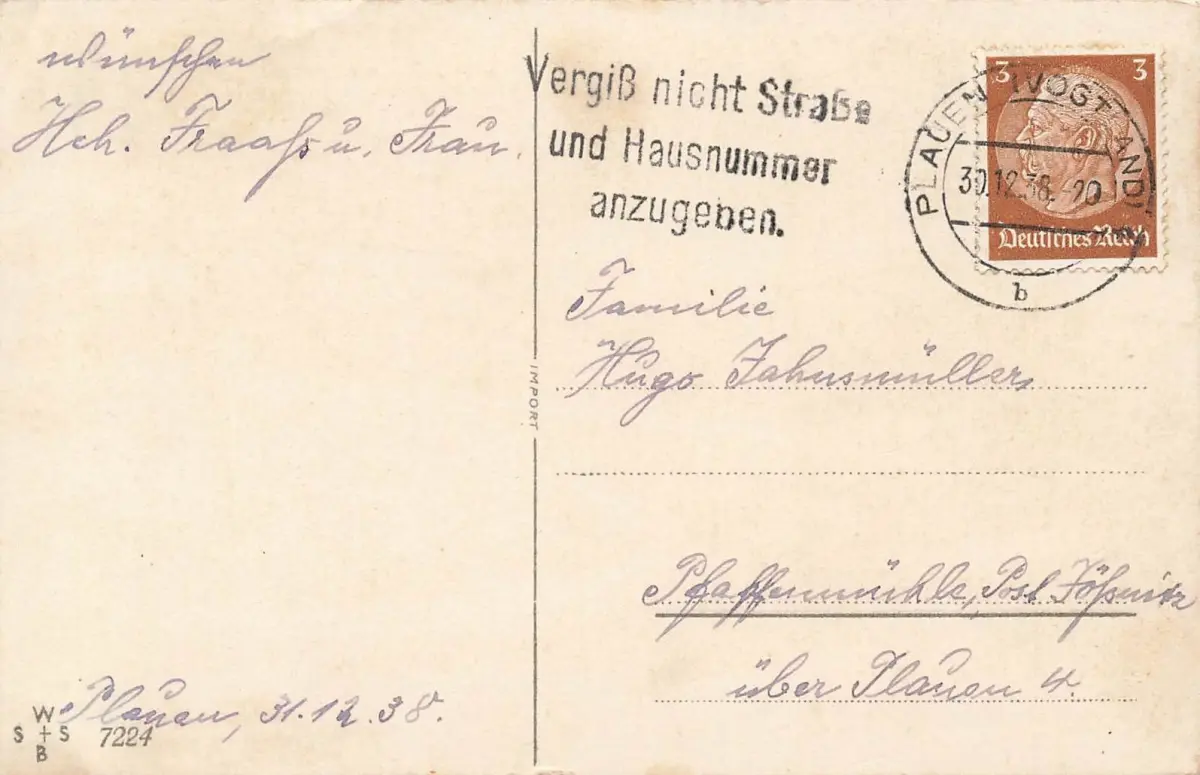 wünschen
Hch. Fraaß u. Frau.
Plauen, 31.12.38.
W
S + S
B
7224
IMPORT
Vergiß nicht Straße
und Hausnummer
anzugeben.
PLAUEN (VOGTLAND)
30.12.38.-20
b
3 3
Deutsches Reich
Familie
Hugo Jahnsmüller,
Pfaffenmühle, Post Jößnitz
über Plauen 4.